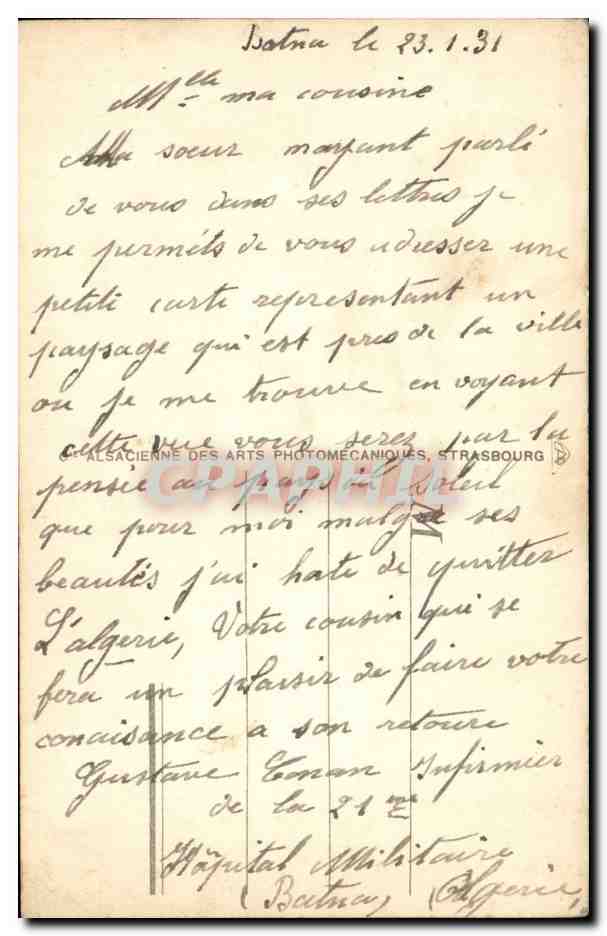 Batna le 23.1.31
Mlle ma cousine
Ma soeur mayant parlé
de vous dans ses lettres je
me perméts de vous adresser une
petite carte representant un
paysage qui est pres de la ville
ou je me trouve en voyant
cette vue vous serez par la
Cie ALSACIENNE DES ARTS PHOTOMECANIQUES, STRASBOURG
pensée au pays du soleil
CPARHIL
que pour moi malgre ses
M
beautés j'ai hate de quitter
L'algerie, Votre cousin qui se
fera un plaisir de faire votre
conaisance a son retoure
Gustave Conan Infirmier
de la 21me
Hôpital Militaire
(Batna) (Algerie)